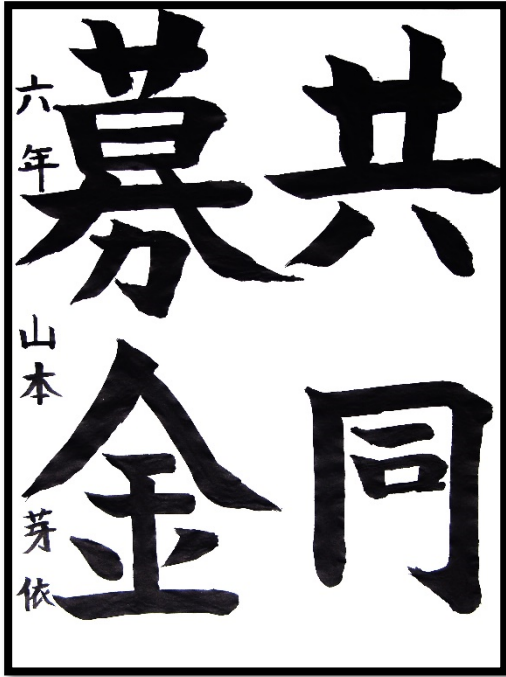 共同
募金
六年 山本 芽依